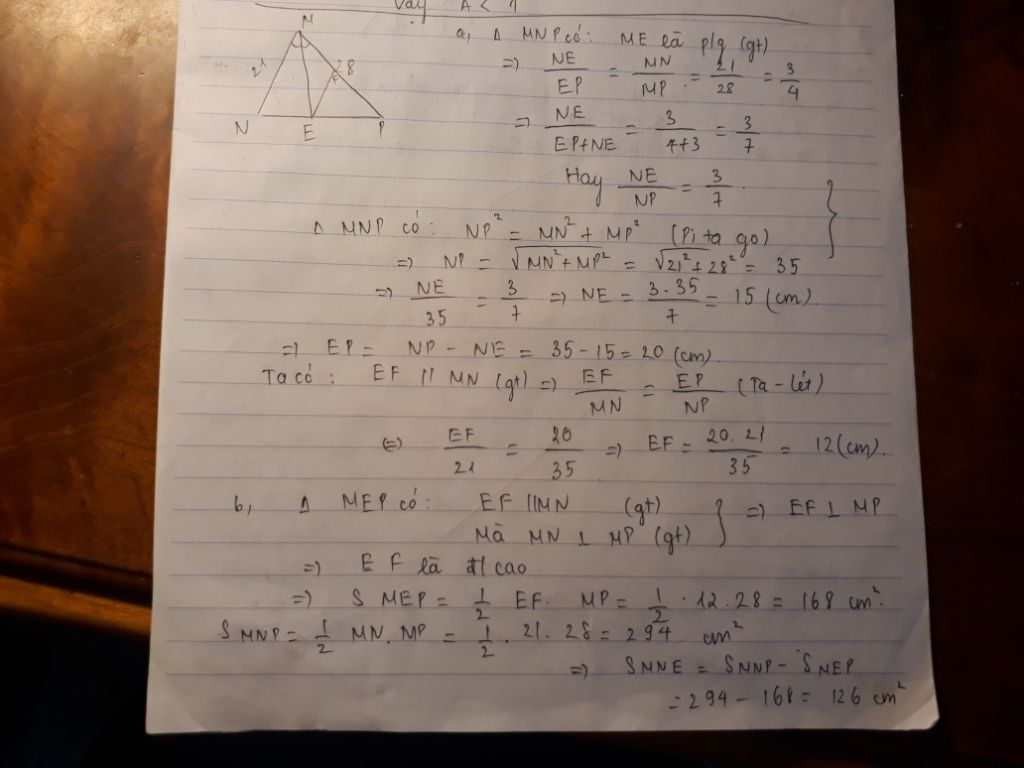 Vậy A < 1
M
21
28
N E P
a, Δ MNP có: ME là p/g (gt)
=> NE/EP = MN/MP = 21/28 = 3/4
=> NE/EP+NE = 3/4+3 = 3/7
Hay NE/NP = 3/7.
Δ MNP có: NP² = MN² + MP² (Pi ta go)
=> NP = √MN²+MP² = √21²+28² = 35
=> NE/35 = 3/7 => NE = 3.35/7 = 15 (cm).
=> EP = NP - NE = 35 - 15 = 20 (cm).
Ta có: EF // MN (gt) => EF/MN = EP/NP (Ta-lét)
(=) EF/21 = 20/35 => EF = 20.21/35 = 12 (cm).
b, Δ MEP có: EF // MN (gt)
Mà MN ⊥ MP (gt) } => EF ⊥ MP
=> EF là đ/cao
=> S MEP = 1/2 EF. MP = 1/2 . 12.28 = 168 cm².
S MNP = 1/2 MN. MP = 1/2 . 21. 28 = 294 cm²
=> S MNE = S MNP - S MEP
= 294 - 168 = 126 cm²